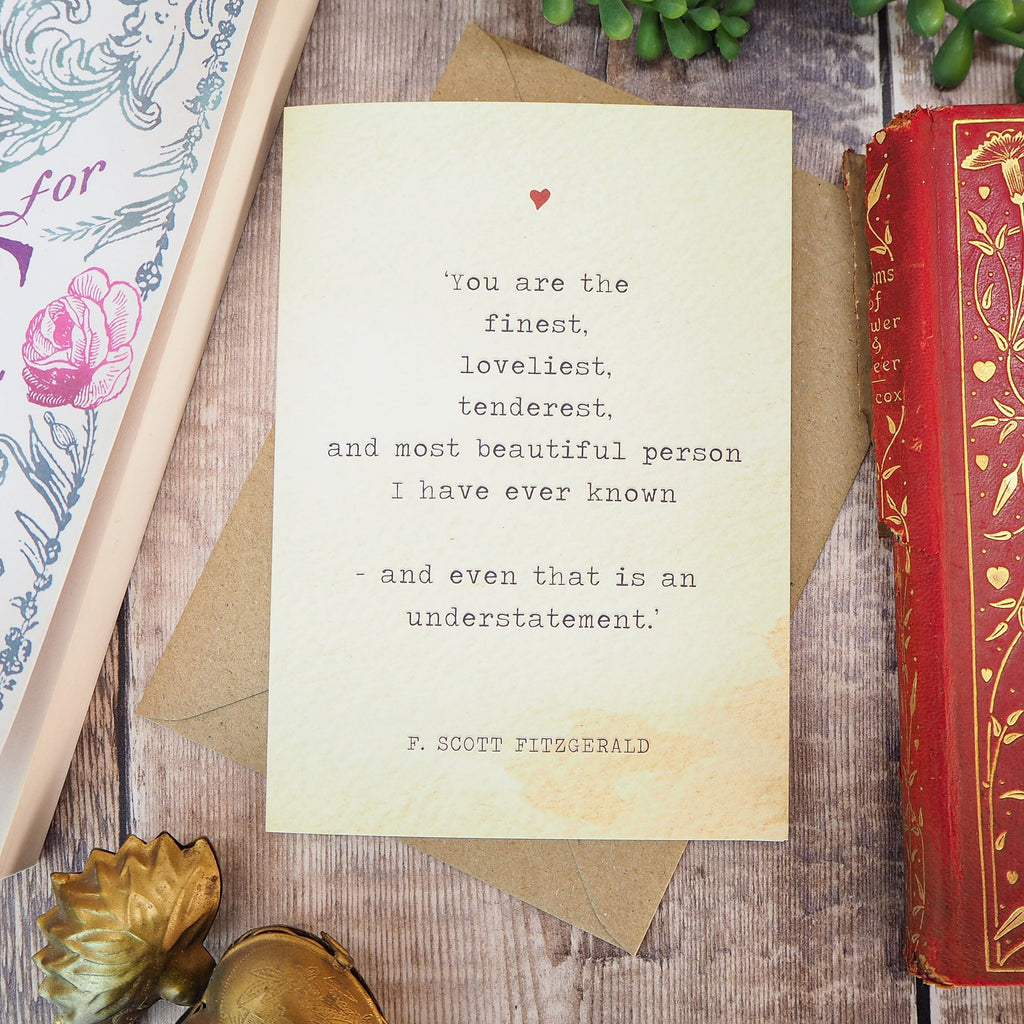 for
‘You are the
finest,
loveliest,
tenderest,
and most beautiful person
I have ever known
- and even that is an
understatement.’
F. SCOTT FITZGERALD
of
&